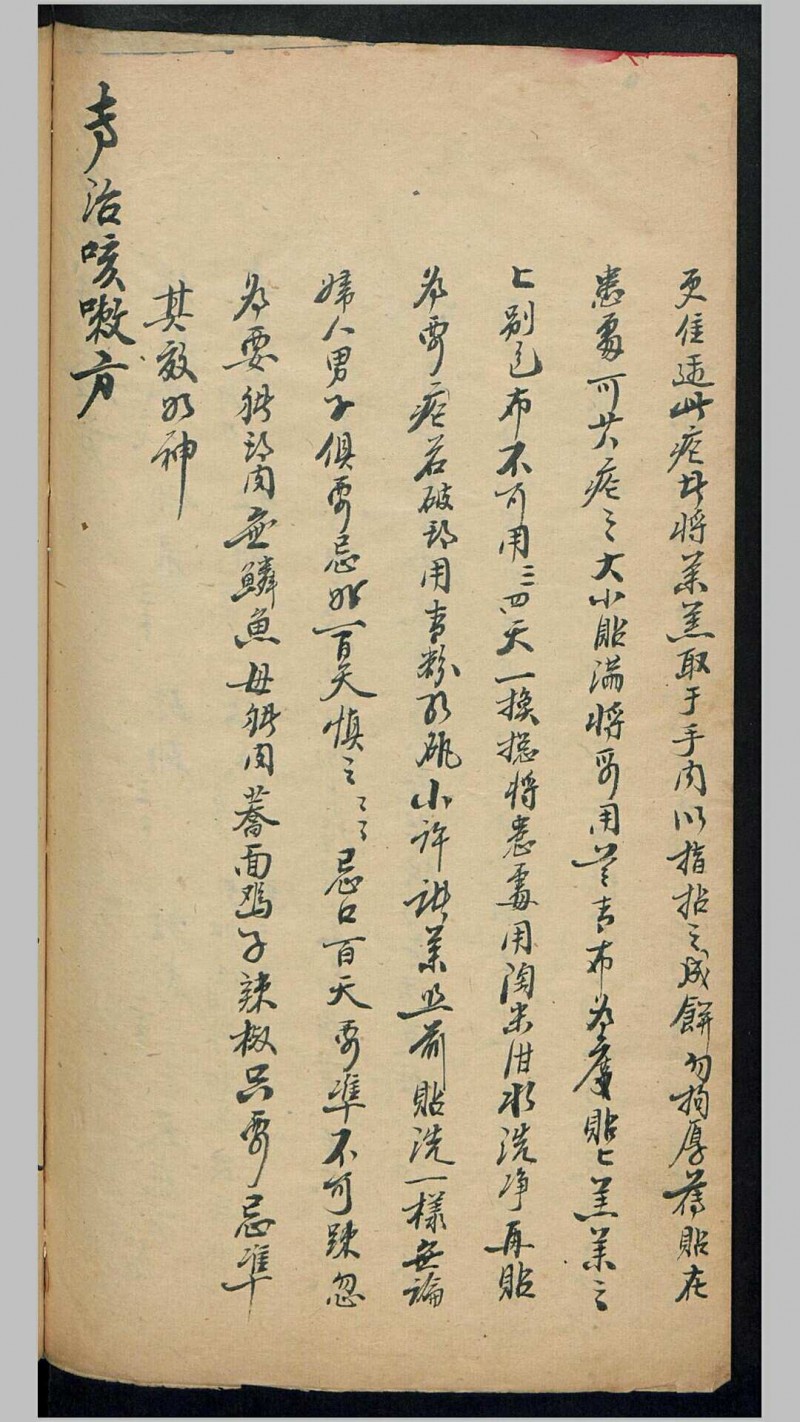 更佳遇此疮者將藥羔取于手內以指拈之成餅勿拘厚薄貼在
患處可如疮之大小貼滿將要用藍青布為膏貼上羔藥之
上别色布不可用三四天一換摠將患處用淘米泔水洗净再貼
為要疮若破郎用青粉明砒小許此藥照前貼洗一樣無論
婦人男子俱要忌外一百天慎之之之忌口百天要準不可踈忽
為要猪頭肉無鱗魚母猪肉蕎面鸡子辣椒只要忌準
其效如神
專治咳嗽方